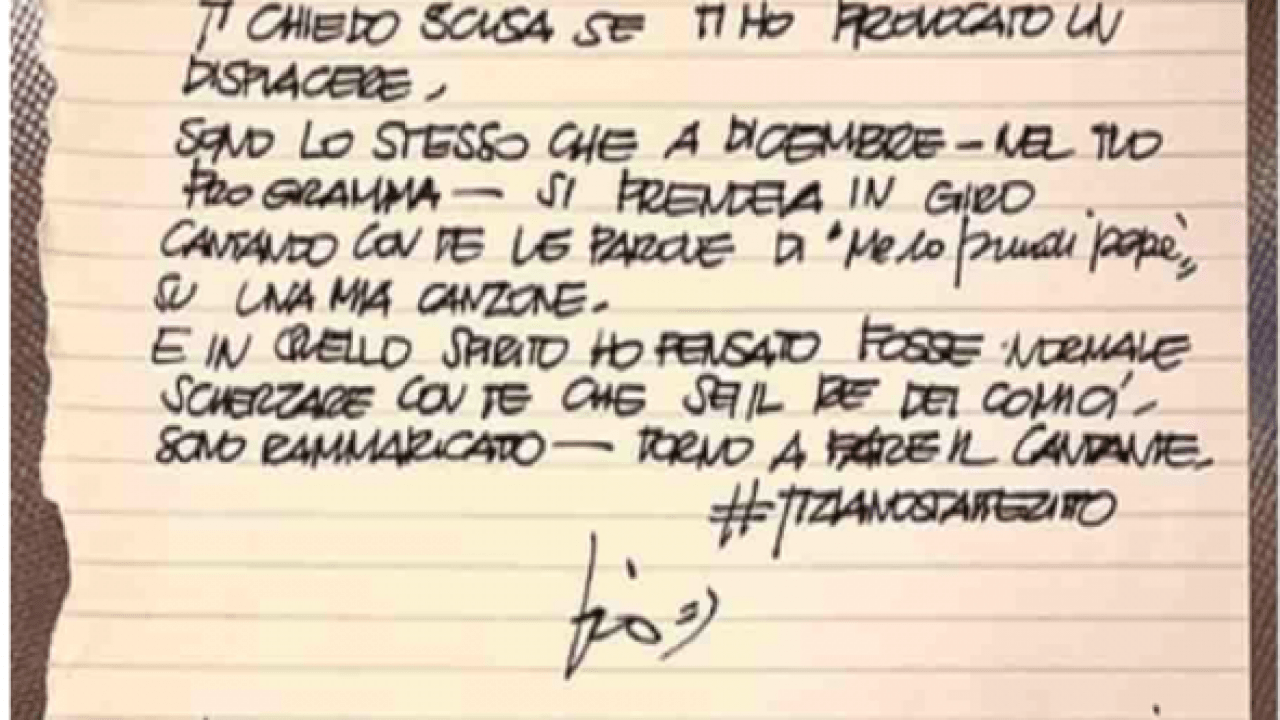 TI CHIEDO SCUSA SE TI HO PROVOCATO UN
DISPIACERE.
SONO LO STESSO CHE A DICEMBRE – NEL TUO
PROGRAMMA — SI PRENDEVA IN GIRO
CANTANDO CON TE LE PAROLE DI "Me lo prendi papè"
SU UNA MIA CANZONE.
E IN QUELLO SPIRITO HO PENSATO FOSSE NORMALE
SCHERZARE CON TE CHE SEI IL RE DEI COMICI.
SONO RAMMARICATO — TORNO A FARE IL CANTANTE.
#TIZIANOSTATTEZITTO